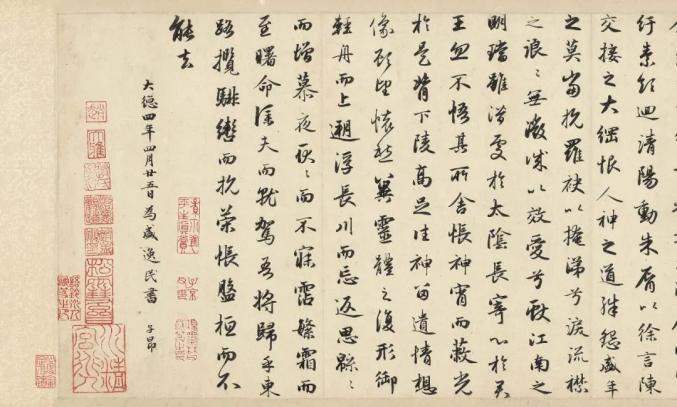 紆素領迴清陽動朱脣以徐言陳
交接之大綱恨人神之道殊怨盛年
之莫當抗羅袂以掩涕兮淚流襟
之浪〻無微誠以效愛兮獻江南之
明璫雖潛處於太陰長寄心於君
王忽不悟其所舍悵神宵而蔽光
於是背下陵高足往神留遺情想
像顧望懷愁冀靈體之復形御
輕舟而上遡浮長川而忘返思緜〻
而增慕夜耿〻而不寐霑繁霜而
至曙命僕夫而就駕吾將歸乎東
路攬騑轡而抗策悵盤桓而不
能去
大德四年四月廿五日為盛逸民書 子昂